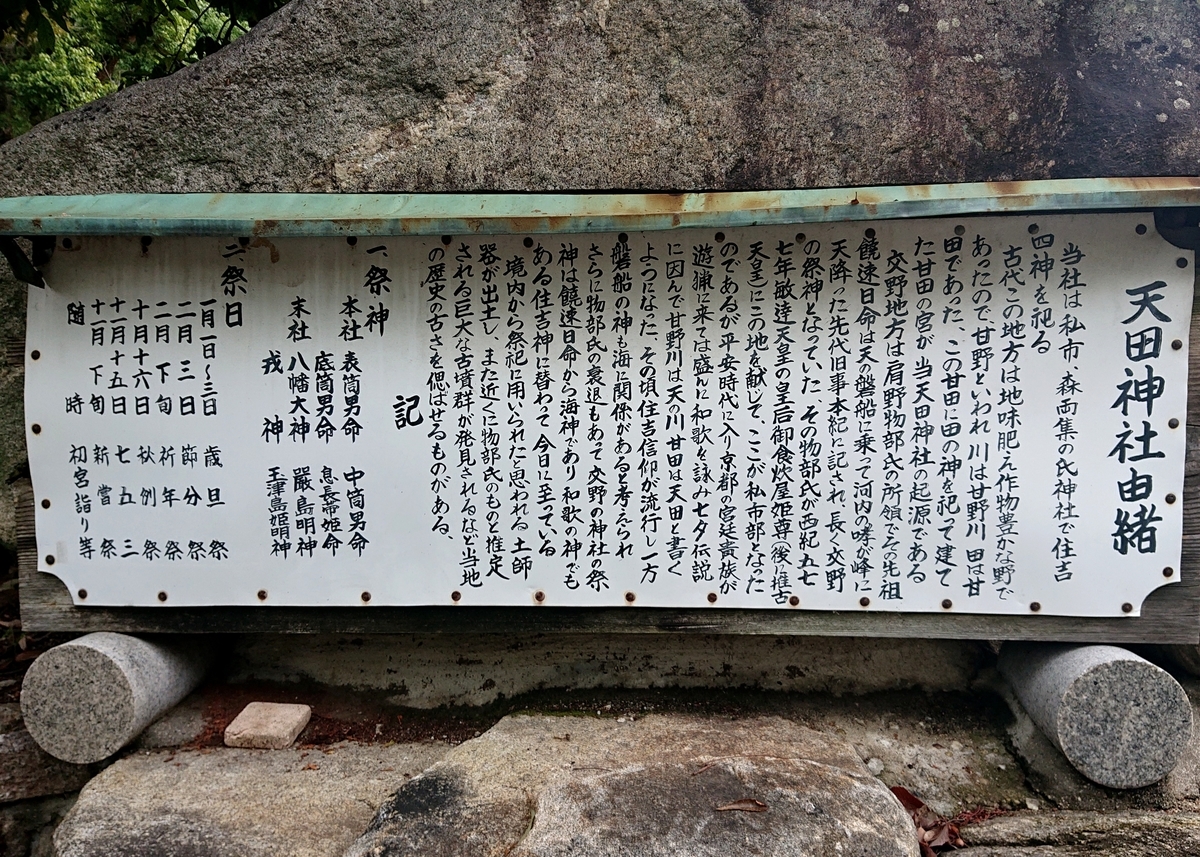 天田神社由緒
当社は私市、森両集の氏神社で住吉
四神を祀る
古代この地方は地味肥え作物豊かな野で
あったので甘野といわれ川は甘野川 田は甘
田であった、この甘田に田の神を祀って建て
た甘田の宮が当天田神社の起源である
交野地方は肩野物部氏の所領でその先祖
饒速日命は天の磐船に乗って河内の哮が峰に
天降った先代旧事本紀に記され長く交野
の祭神となっていた、その物部氏が西紀五七
七年敏達天皇の皇后御食炊屋姫尊(後に推古
天皇)にこの地を献じて、ここが私市部となった
のであるが平安時代に入り京都の宮廷貴族が
遊猟に来ては盛んに和歌を詠み七夕伝説
に因んで甘野川は天の川甘田は天田と書く
ようになった、その頃住吉信仰が流行し一方
磐船の神も海に関係があると考えられ
さらに物部氏の衰退もあって交野の神社の祭
神は饒速日命から海神であり和歌の神でも
ある住吉神に替わって今日に至っている
境内から祭祀に用いられたと思われる土師
器が出土し、また近くに物部氏のものと推定
される巨大な古墳群が発見されるなど当地
の歴史の古さを偲ばせるものがある、
記
一、祭神
本社 表筒男命 中筒男命
底筒男命 息長帯姫命
末社 八幡大神 厳島明神
戎神 玉津島姫明神
二、祭日
一月一日〜三日 歳旦祭
二月三日 節分祭
二月下旬 祈年祭
十月十六日 秋例祭
十月十五日 七五三
十一月下旬 新嘗祭
随時 初宮詣り等